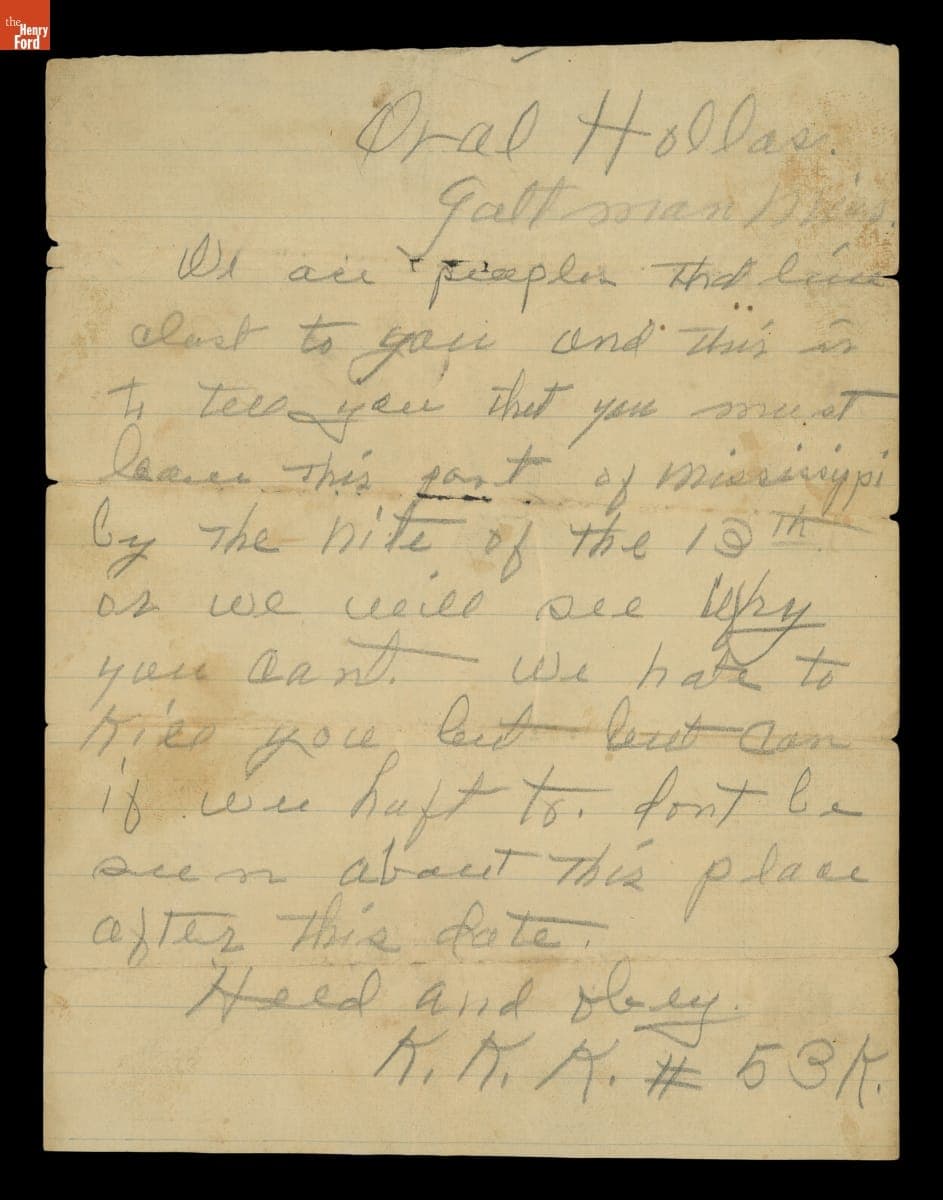 the
Henry
Ford
Oral Hollas.
Gattman Miss.
We are peoples that live
clost to you and this is
to tell you that you must
leave this part of Mississippi
by the nite of the 13th
or we will see Why
you cant. We hate to
Kill you but but can
if we haft to. dont be
seen about this place
after this date.
Heed and obey.
K. K. K. # 53 K.